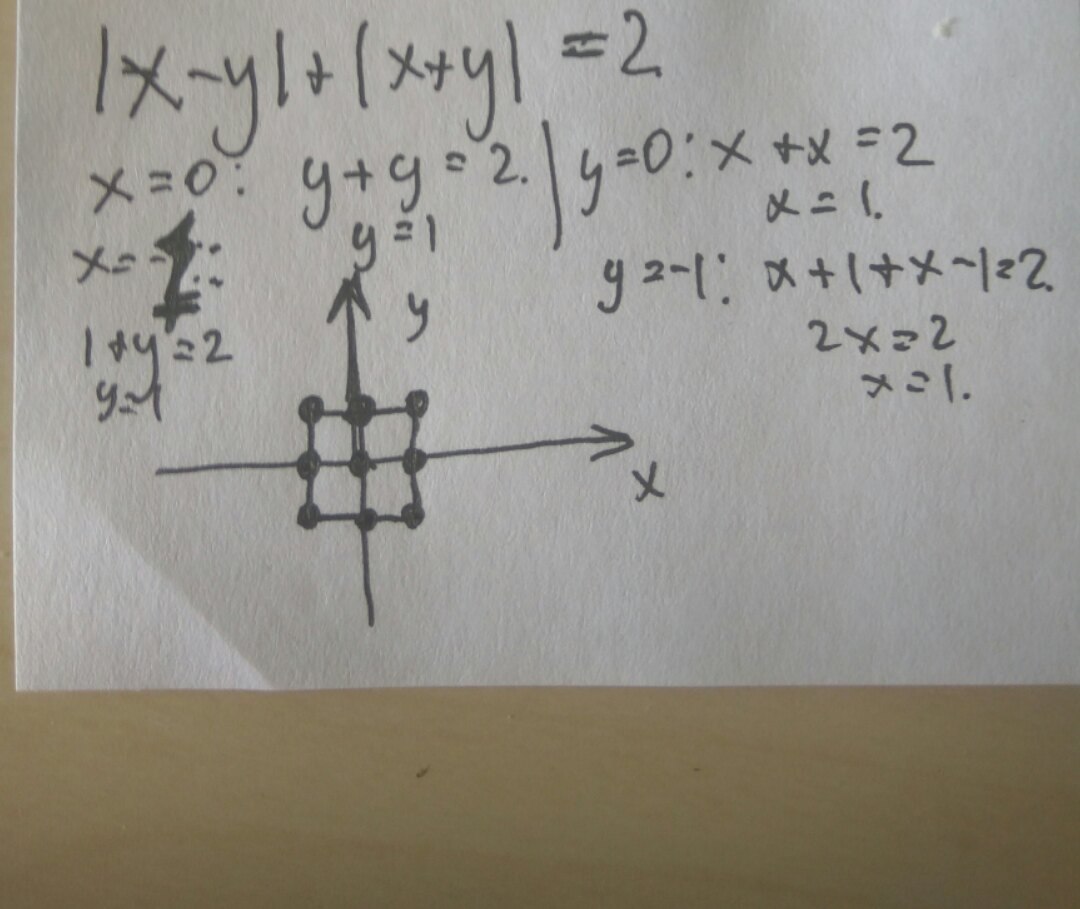 |x-y|+|x+y| =2
x=0: y+y=2. | y=0: x+x=2
y=1
x=1.
y=-1: x+1+x-1=2.
1+y=2
2x=2
y=1
x=1.
y
x